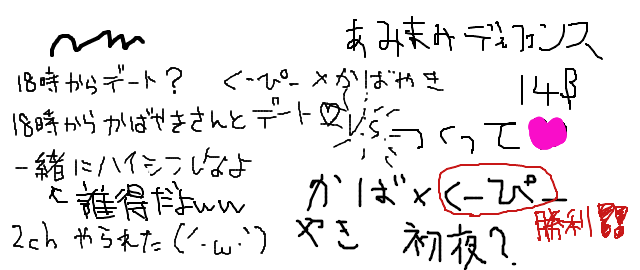 あみまみディフェンス
18時からデート? くーぴー×かばやき
14β
18時からかばやきさんとデート♡
VS
つくって
一緒にハイシンしなよ
←誰得だよww
かばやき×くーぴー
勝利!!
2chやられた(´・ω・`)
初夜?